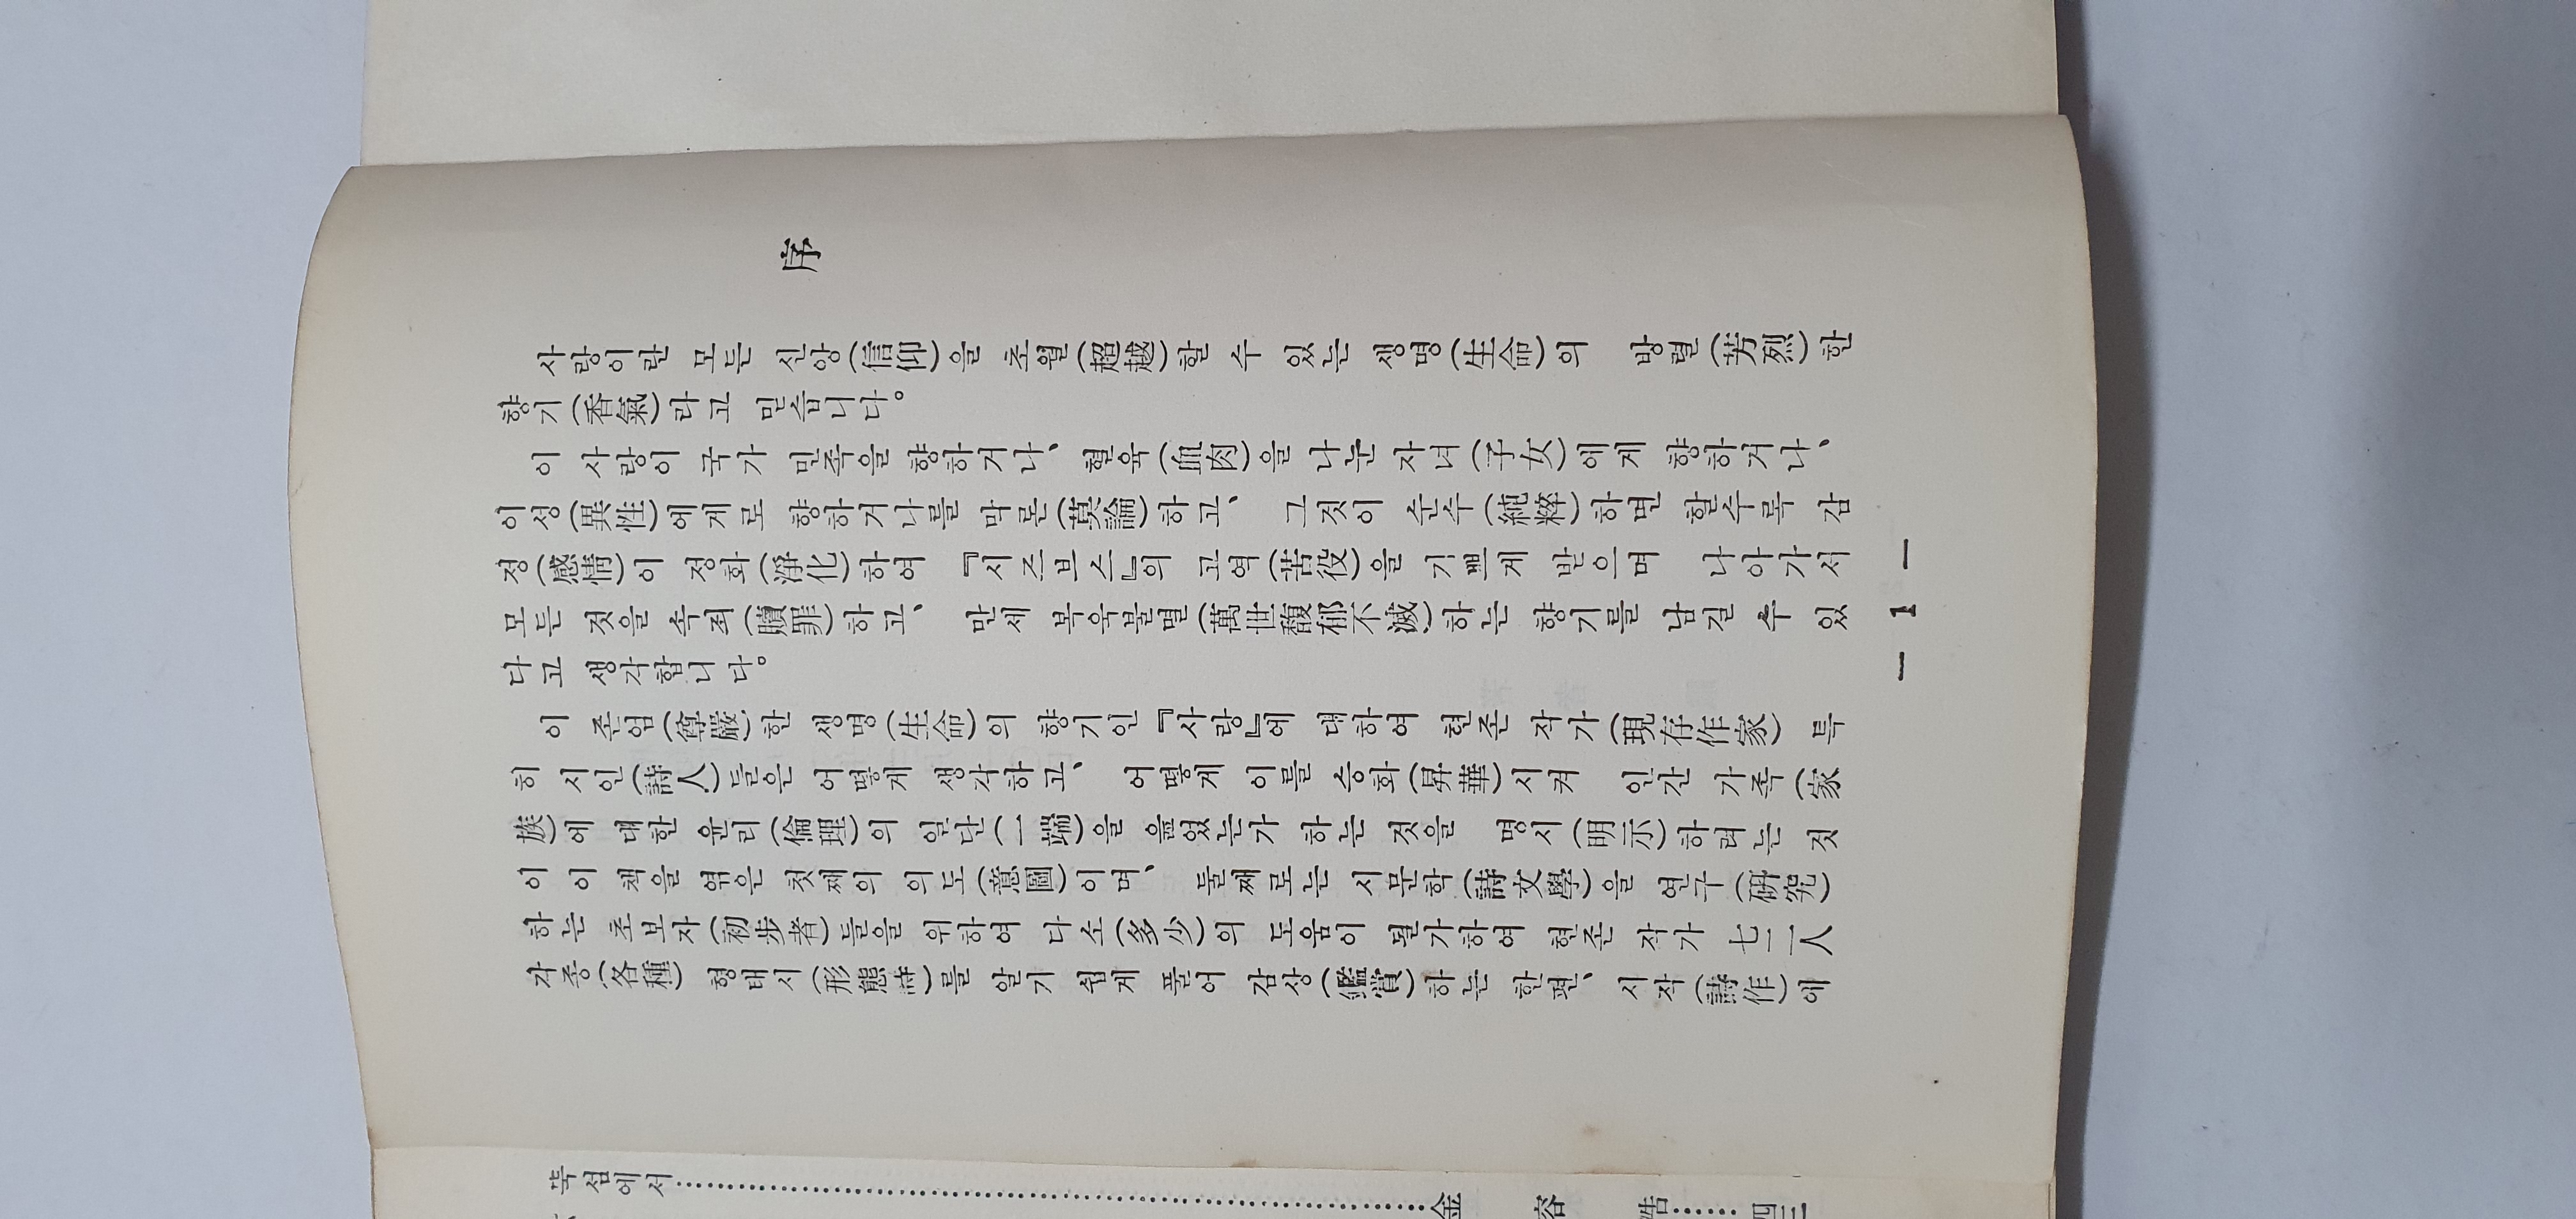 序
사랑이란 모든 신앙(信仰)을 초월(超越)할 수 있는 생명(生命)의 방렬(芳烈)한
향기(香氣)라고 믿습니다。
이 사랑이 국가 민족을 향하거나、 혈육(血肉)을 나눈 자녀(子女)에게 향하거나、
이성(異性)에게로 향하거나를 막론(莫論)하고、 그것이 순수(純粹)하면 할수록 감
정(感情)이 정화(淨化)하여 『시즈브스』의 고역(苦役)을 기쁘게 받으며 나아가서
모든 것을 속죄(贖罪)하고、 만세 복욱불멸(萬世馥郁不滅)하는 향기를 남길 수 있
다고 생각합니다。
이 존엄(尊嚴)한 생명(生命)의 향기인 『사랑』에 대하여 현존 작가(現存作家) 특
히 시인(詩人)들은 어떻게 생각하고、 어떻게 이를 승화(昇華)시켜 인간 가족(家
族)에 대한 윤리(倫理)의 일단(一端)을 읊었는가 하는 것을 명시(明示)하려는 것
이 이 책을 엮은 첫째의 의도(意圖)이며、 둘째로는 시문학(詩文學)을 연구(硏究)
하는 초보자(初步者)들을 위하여 다소(多少)의 도움이 될가하여 현존 작가 七二人
각종(各種) 형태시(形態詩)를 알기 쉽게 풀어 감상(鑑賞)하는 한편、 시작(詩作)에
— 1 —
뚝섬에서……………………金 容 浩……四三